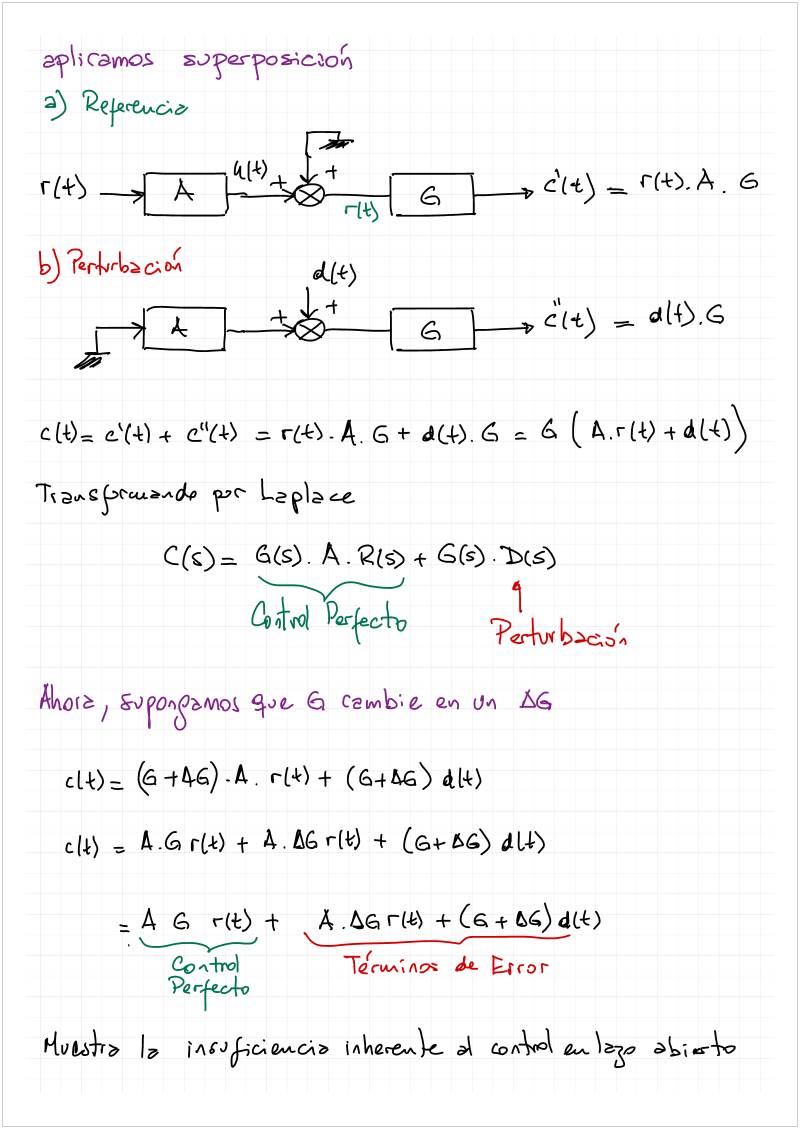 aplicamos superposición
a) Referencia
r(t) A u(t) + + r(t) G c'(t) = r(t). A . G
b) Perturbación
d(t)
A + + G c''(t) = d(t).G
c(t) = c'(t) + c''(t) = r(t) . A. G + d(t). G = G ( A.r(t) + d(t) )
Transformando por Laplace
C(s) = G(s) . A . R(s) + G(s) . D(s)
Control Perfecto
Perturbación
Ahora, supongamos que G cambie en un ΔG
c(t) = (G + ΔG) . A . r(t) + (G + ΔG) d(t)
c(t) = A . G r(t) + A . ΔG r(t) + (G + ΔG) d(t)
= A G r(t) + A . ΔG r(t) + (G + ΔG) d(t)
Control Términos de Error
Perfecto
Muestra la insuficiencia inherente al control en lazo abierto